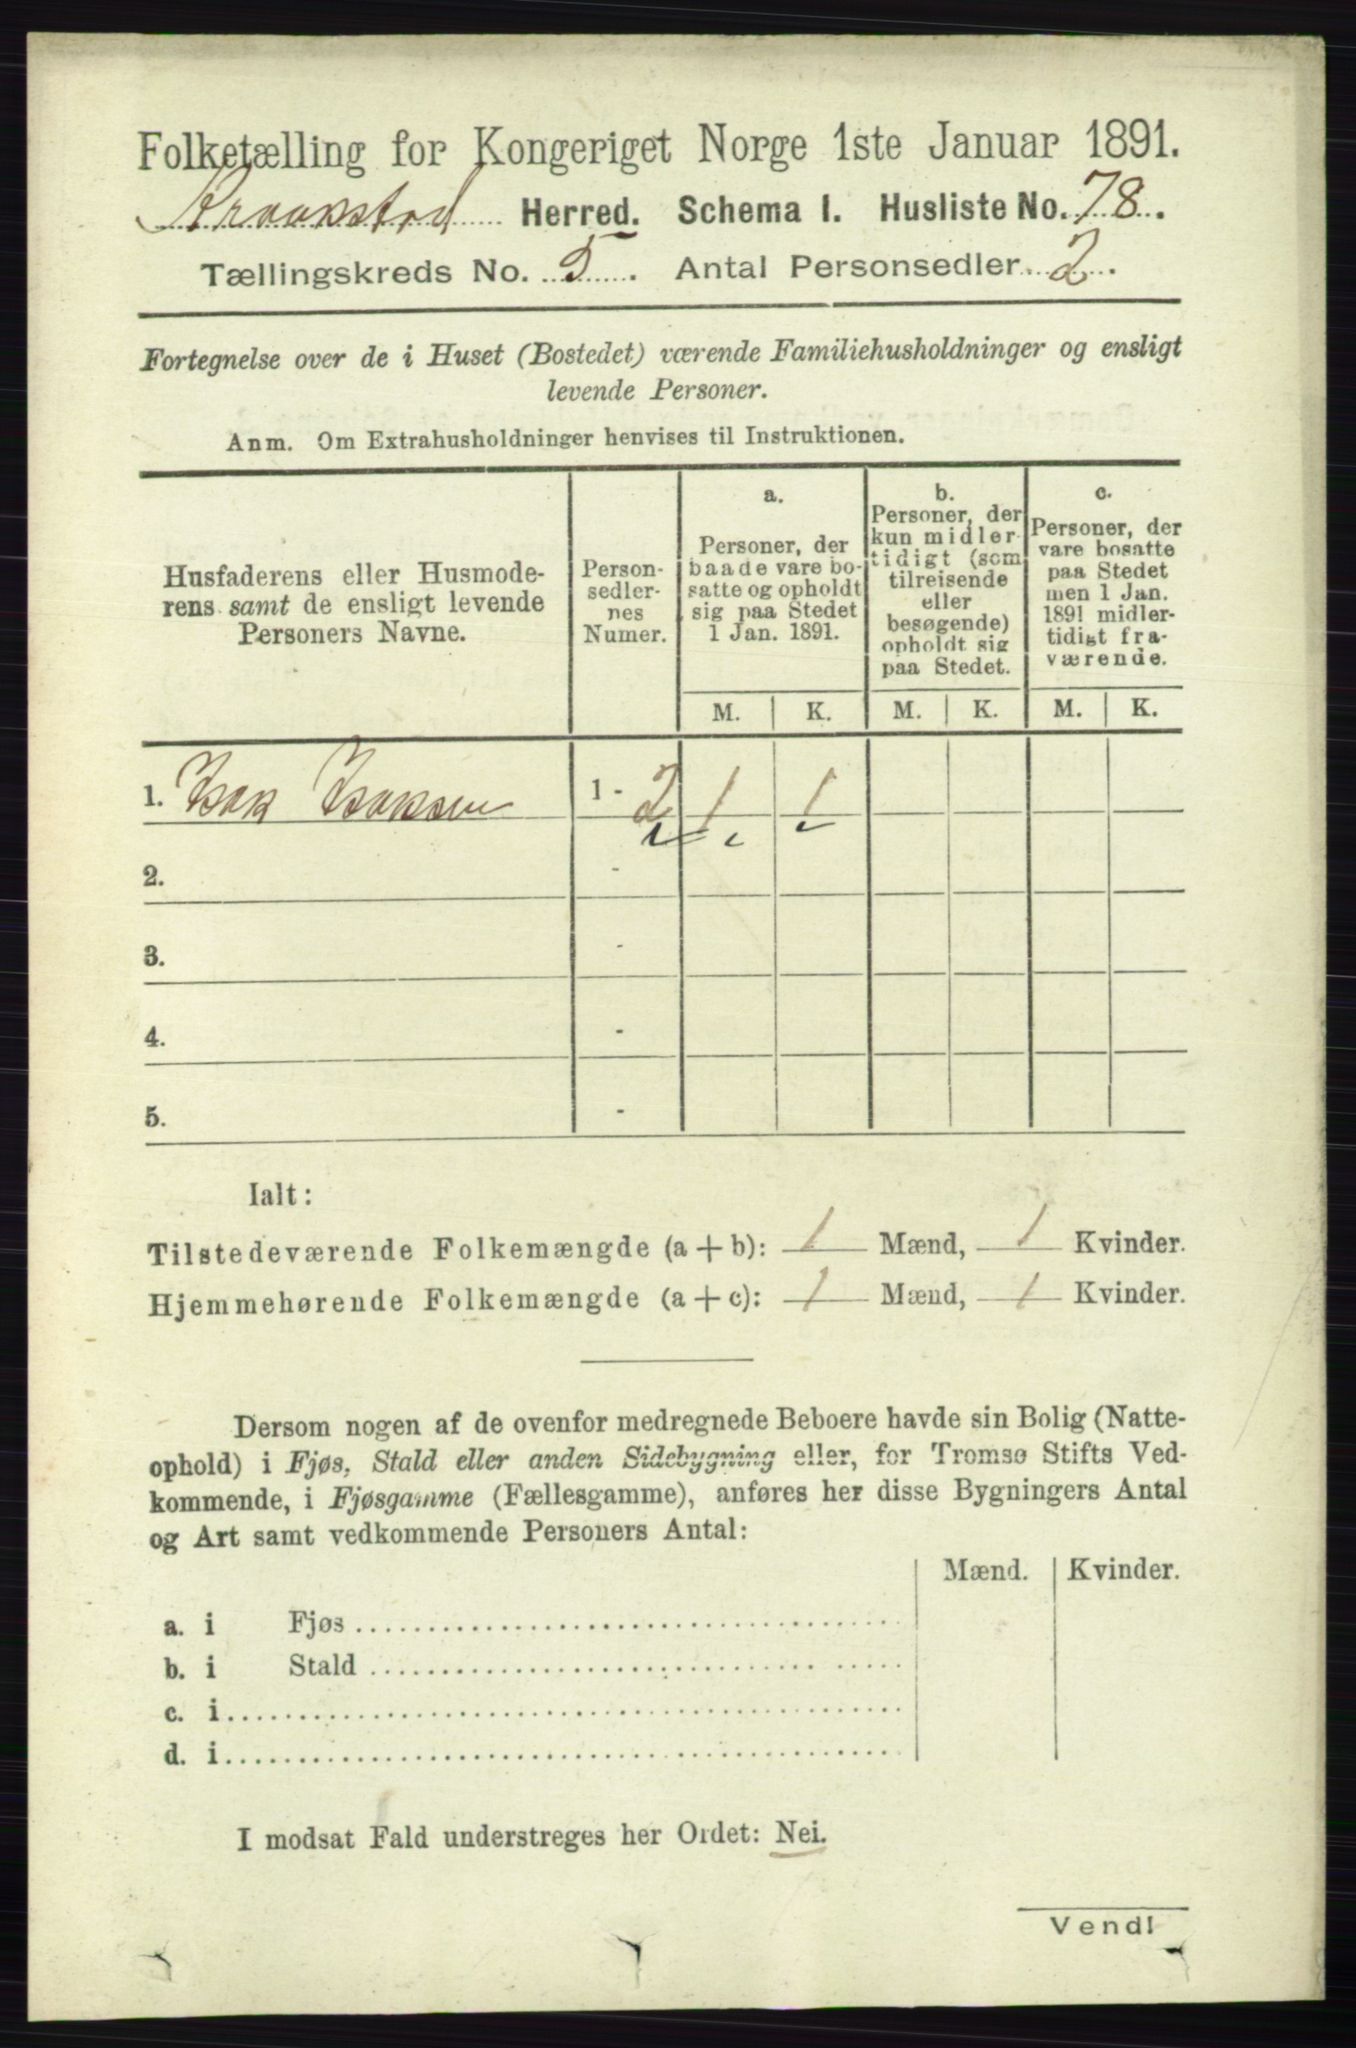 Folketælling for Kongeriget Norge 1ste Januar 1891.
Kraakstad Herred. Schema I. Husliste No. 78.
Tællingskreds No. 5. Antal Personsedler 2.
Fortegnelse over de i Huset (Bostedet) værende Familiehusholdninger og ensligt
levende Personer.
Anm. Om Extrahusholdninger henvises til Instruktionen.
Husfaderens eller Husmode-
rens samt de ensligt levende
Personers Navne.
Person-
sedler-
nes
Numer.
a.
Personer, der
baade vare bo-
satte og opholdt
sig paa Stedet
1 Jan. 1891.
b.
Personer, der
kun midler-
tidigt (som
tilreisende
eller
besøgende)
opholdt sig
paa Stedet.
c.
Personer, der
vare bosatte
paa Stedet
men 1 Jan.
1891 midler-
tidigt fra-
værende.
M. K. M. K. M. K.
1. Isak Isaksen 1 - 2 1 1
2. -
3. -
4. -
5. -
Ialt:
Tilstedeværende Folkemængde (a + b): 1 Mænd, 1 Kvinder.
Hjemmehørende Folkemængde (a + c): 1 Mænd, 1 Kvinder.
Dersom nogen af de ovenfor medregnede Beboere havde sin Bolig (Natte-
ophold) i Fjøs, Stald eller anden Sidebygning eller, for Tromsø Stifts Ved-
kommende, i Fjøsgamme (Fællesgamme), anføres her disse Bygningers Antal
og Art samt vedkommende Personers Antal:
Mænd. Kvinder.
a. i Fjøs
b. i Stald
c. i
d. i
I modsat Fald understreges her Ordet: Nei.
Vend!